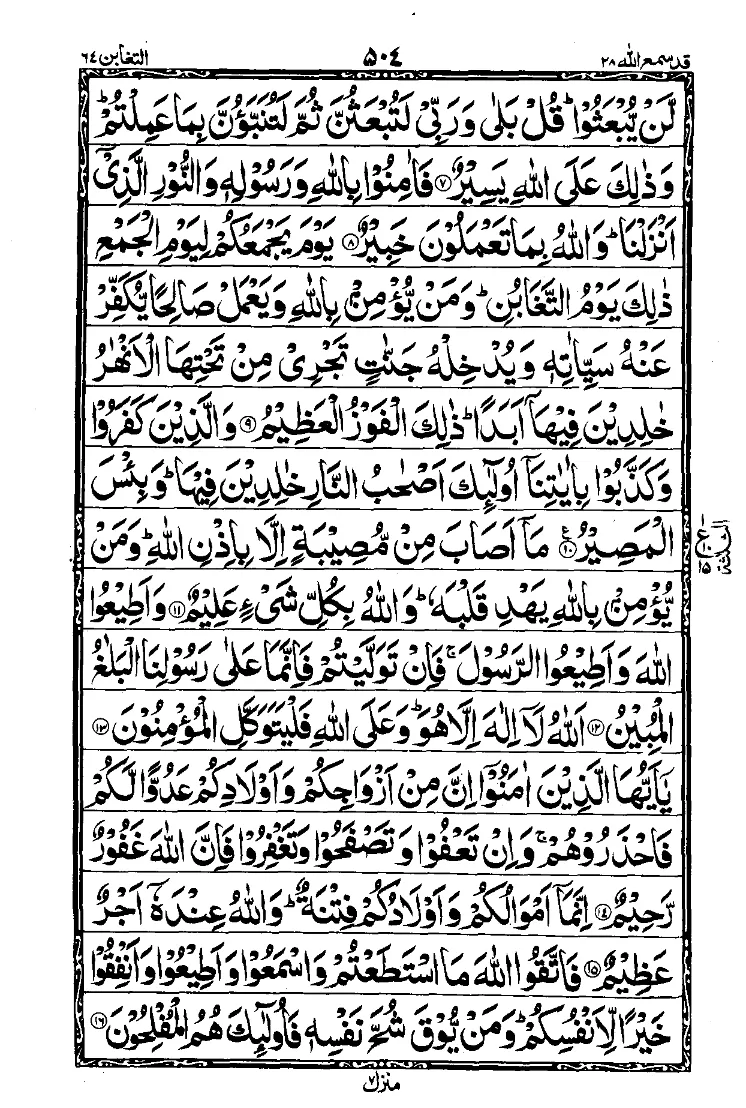 قد سمع الله ٢٨
٥٠٤
التغابن ٦٤
لَنْ يُّبْعَثُوْا ؕ قُلْ بَلٰى وَرَبِّىْ لَتُبْعَثُنَّ ثُمَّ لَتُنَبَّؤُنَّ بِمَا عَمِلْتُمْ ؕ
وَذٰلِكَ عَلَى اللّٰهِ يَسِيْرٌ ۝۷ فَاٰمِنُوْا بِاللّٰهِ وَرَسُوْلِهٖ وَالنُّوْرِ الَّذِىْۤ
اَنْزَلْنَا ؕ وَاللّٰهُ بِمَا تَعْمَلُوْنَ خَبِيْرٌ ۝۸ يَوْمَ يَجْمَعُكُمْ لِيَوْمِ الْجَمْعِ
ذٰلِكَ يَوْمُ التَّغَابُنِ ؕ وَمَنْ يُّؤْمِنْۢ بِاللّٰهِ وَيَعْمَلْ صَالِحًا يُّكَفِّرْ
عَنْهُ سَيِّاٰتِهٖ وَيُدْخِلْهُ جَنّٰتٍ تَجْرِىْ مِنْ تَحْتِهَا الْاَنْهٰرُ
خٰلِدِيْنَ فِيْهَاۤ اَبَدًا ؕ ذٰلِكَ الْفَوْزُ الْعَظِيْمُ ۝۹ وَالَّذِيْنَ كَفَرُوْا
وَكَذَّبُوْا بِاٰيٰتِنَاۤ اُولٰٓئِكَ اَصْحٰبُ النَّارِ خٰلِدِيْنَ فِيْهَا ؕ وَبِئْسَ
الْمَصِيْرُ ۝۱۰ ع مَاۤ اَصَابَ مِنْ مُّصِيْبَةٍ اِلَّا بِاِذْنِ اللّٰهِ ؕ وَمَنْ
يُّؤْمِنْۢ بِاللّٰهِ يَهْدِ قَلْبَهٗ ؕ وَاللّٰهُ بِكُلِّ شَىْءٍ عَلِيْمٌ ۝۱۱ وَاَطِيْعُوا
اللّٰهَ وَاَطِيْعُوا الرَّسُوْلَ ۚ فَاِنْ تَوَلَّيْتُمْ فَاِنَّمَا عَلٰى رَسُوْلِنَا الْبَلٰغُ
الْمُبِيْنُ ۝۱۲ اَللّٰهُ لَاۤ اِلٰهَ اِلَّا هُوَ ؕ وَعَلَى اللّٰهِ فَلْيَتَوَكَّلِ الْمُؤْمِنُوْنَ ۝۱۳
يٰۤاَيُّهَا الَّذِيْنَ اٰمَنُوْۤا اِنَّ مِنْ اَزْوَاجِكُمْ وَاَوْلَادِكُمْ عَدُوًّا لَّكُمْ
فَاحْذَرُوْهُمْ ۚ وَاِنْ تَعْفُوْا وَتَصْفَحُوْا وَتَغْفِرُوْا فَاِنَّ اللّٰهَ غَفُوْرٌ
رَّحِيْمٌ ۝۱۴ اِنَّمَاۤ اَمْوَالُكُمْ وَاَوْلَادُكُمْ فِتْنَةٌ ؕ وَاللّٰهُ عِنْدَهٗۤ اَجْرٌ
عَظِيْمٌ ۝۱۵ فَاتَّقُوا اللّٰهَ مَا اسْتَطَعْتُمْ وَاسْمَعُوْا وَاَطِيْعُوْا وَاَنْفِقُوْا
خَيْرًا لِّاَنْفُسِكُمْ ؕ وَمَنْ يُّوْقَ شُحَّ نَفْسِهٖ فَاُولٰٓئِكَ هُمُ الْمُفْلِحُوْنَ ۝۱۶
الثلثة
ع
۱۰
۱۵
منزل ٧